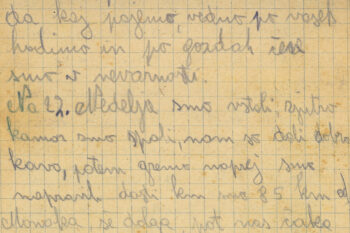 da kaj pojemo, vedno po vaseh
hodimo in po gozdah
smo v nevarnosti.
Na 22. Nedelja smo vstali zjutro
kamor smo spali, nam so dali dobro
kavo, potem gremo naprej smo
napravili dosti km smo 85 km od
se dolga pot nas čaka